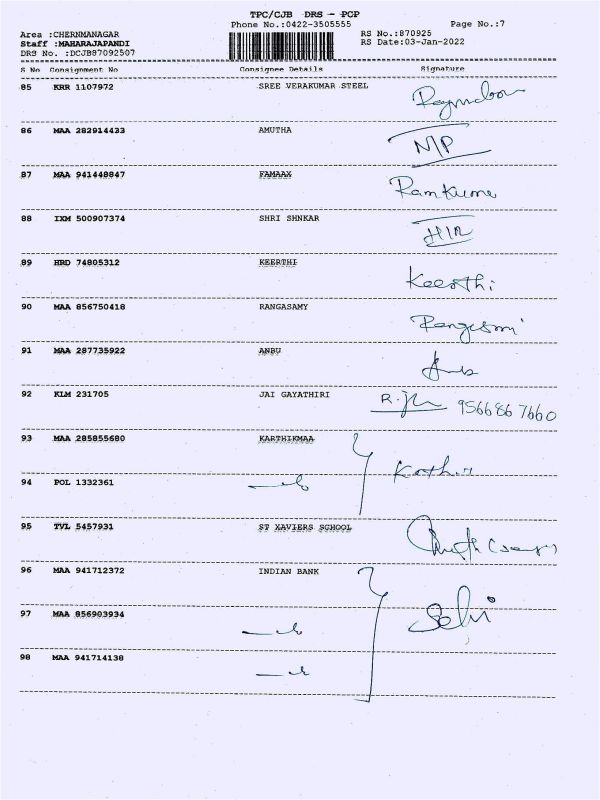 TPC/CJB DRS - PCP
Phone No.:0422-3505555
Page No.:7
Area :CHERNMANAGAR
Staff :MAHARAJAPANDI
DRS No. :DCJB87092507
RS No.:870925
RS Date:03-Jan-2022
S No Consignment No Consignee Details Signature
85 KRR 1107972 SREE VERAKUMAR STEEL
86 MAA 282914433 AMUTHA N/P
87 MAA 941448847 FAMAAX Ramkumar
88 IXM 500907374 SHRI SHNKAR
89 HRD 74805312 KEERTHI Keerthi
90 MAA 856750418 RANGASAMY
91 MAA 287735922 ANBU
92 KLM 231705 JAI GAYATHIRI 9566867660
93 MAA 285855680 KARTHIKMAA
94 POL 1332361
95 TVL 5457931 ST XAVIERS SCHOOL
96 MAA 941712372 INDIAN BANK
97 MAA 856903934
98 MAA 941714138